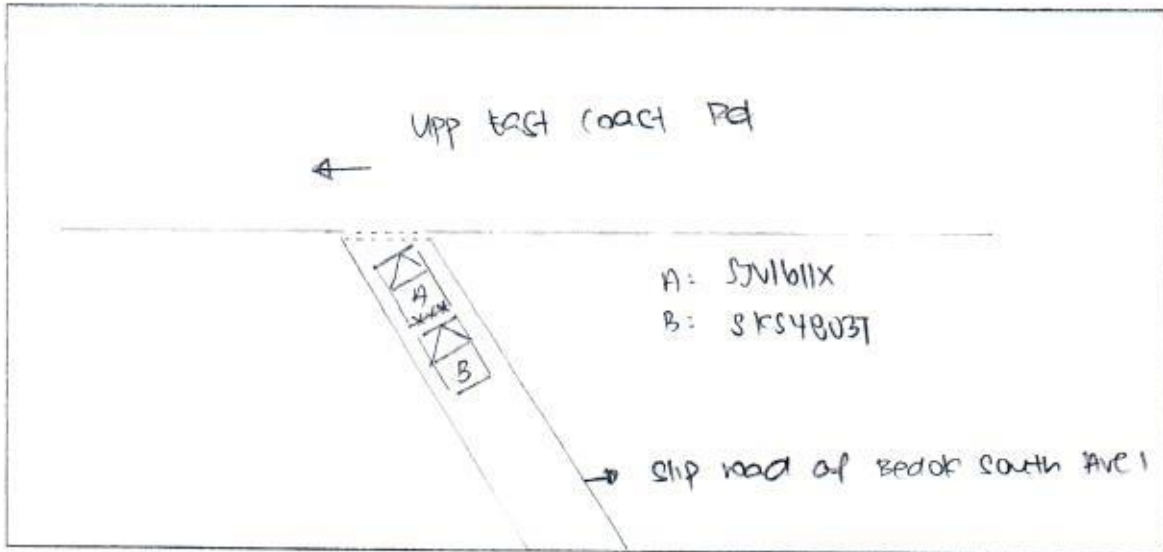 Upp East Coast Rd
A: SJV1611X
A
B: SKS4803T
B
Slip road of Bedok South Ave 1